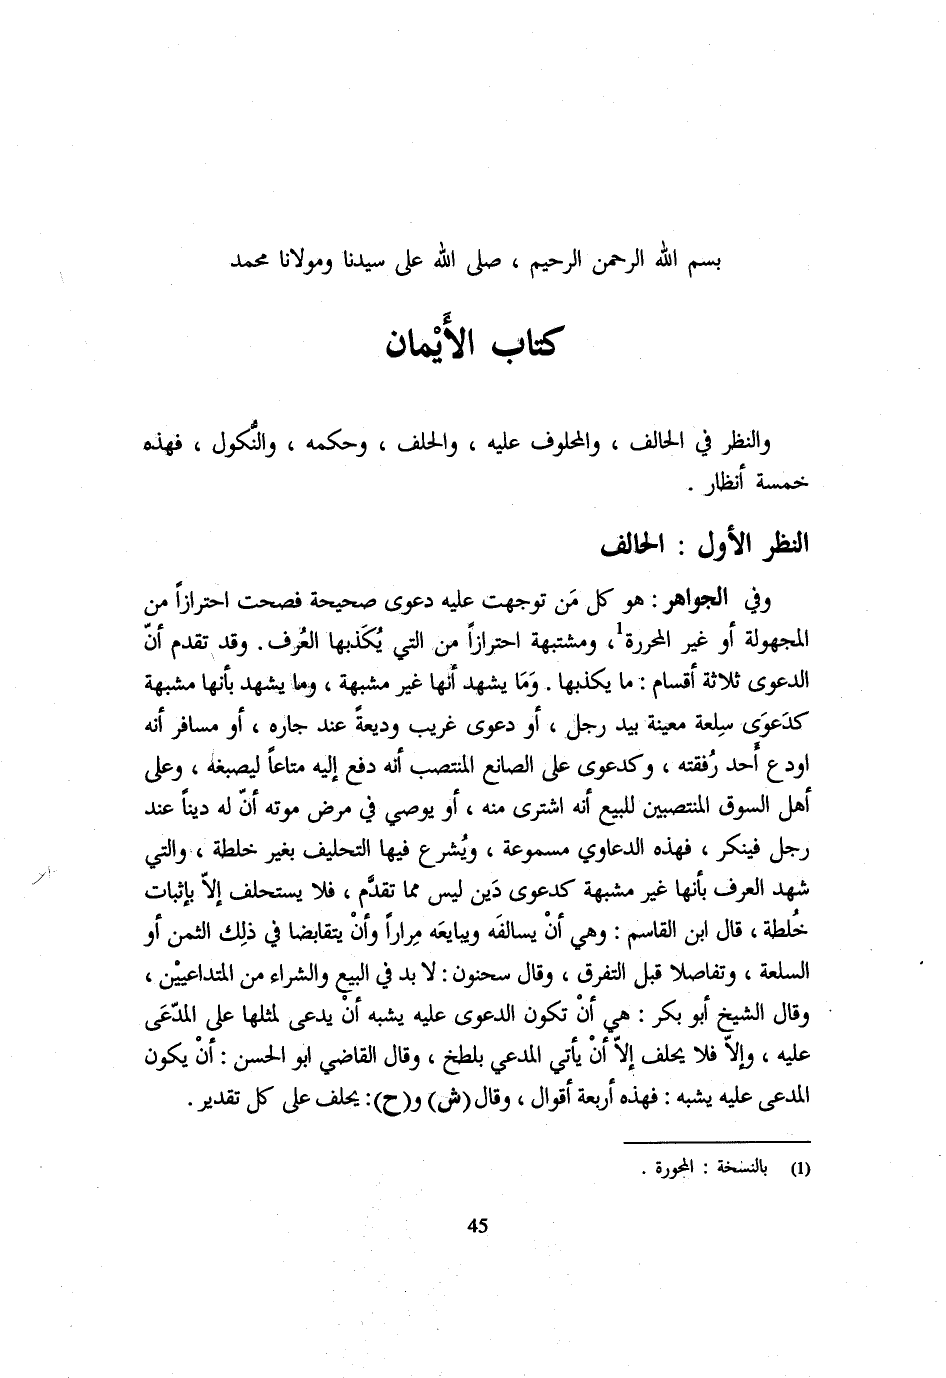 بسم الله الرحمن الرحيم ، صلى الله على سيدنا ومولانا محمد
كتاب الأَيْمان
والنظر في الحالف ، والمحلوف عليه ، والحلف ، وحكمه ، والنُّكول ، فهذه
خمسة أنظار .
النظر الأول : الحالف
وفي الجواهر : هو كل مَن توجهت عليه دعوى صحيحة فصحت احترازاً من
المجهولة أو غير المحررة1، ومشتبهة احترازاً من التي يُكَذبها العُرف. وقد تقدم أنّ
الدعوى ثلاثة أقسام : ما يكذبها . وَمَا يشهد أنها غير مشبهة ، وما يشهد بأنها مشبهة
كدَعوَى سِلعة معينة بيد رجل ، أو دعوى غريب وديعةً عند جاره ، أو مسافر أنه
اودع أَحد رُفقته ، وكدعوى على الصانع المنتصب أنه دفع إليه متاعاً ليصبغه ، وعلى
أهل السوق المنتصبين للبيع أنه اشترى منه ، أو يوصي في مرض موته أنّ له ديناً عند
رجل فينكر ، فهذه الدعاوي مسموعة ، ويُشرع فيها التحليف بغير خلطة ، والتي
شهد العرف بأنها غير مشبهة كدعوى دَين ليس مما تقدَّم ، فلا يستحلف إلاّ بإثبات
خُلطة ، قال ابن القاسم : وهي أنْ يسالفَه ويبايعَه مِراراً وأنْ يتقابضا في ذلِك الثمن أو
السلعة ، وتفاصلا قبل التفرق ، وقال سحنون : لا بد في البيع والشراء من المتداعييْن ،
وقال الشيخ أبو بكر : هي أنْ تكون الدعوى عليه يشبه أنْ يدعى لمثلها على المدّعَى
عليه ، وإلاّ فلا يحلف إلاّ أنْ يأتي المدعي بلطخ ، وقال القاضي ابو الحسن : أنْ يكون
المدعى عليه يشبه : فهذه أربعة أقوال ، وقال (ش) و(ح): يحلف على كل تقدير .
(1) بالنسخة : المحورة .
45